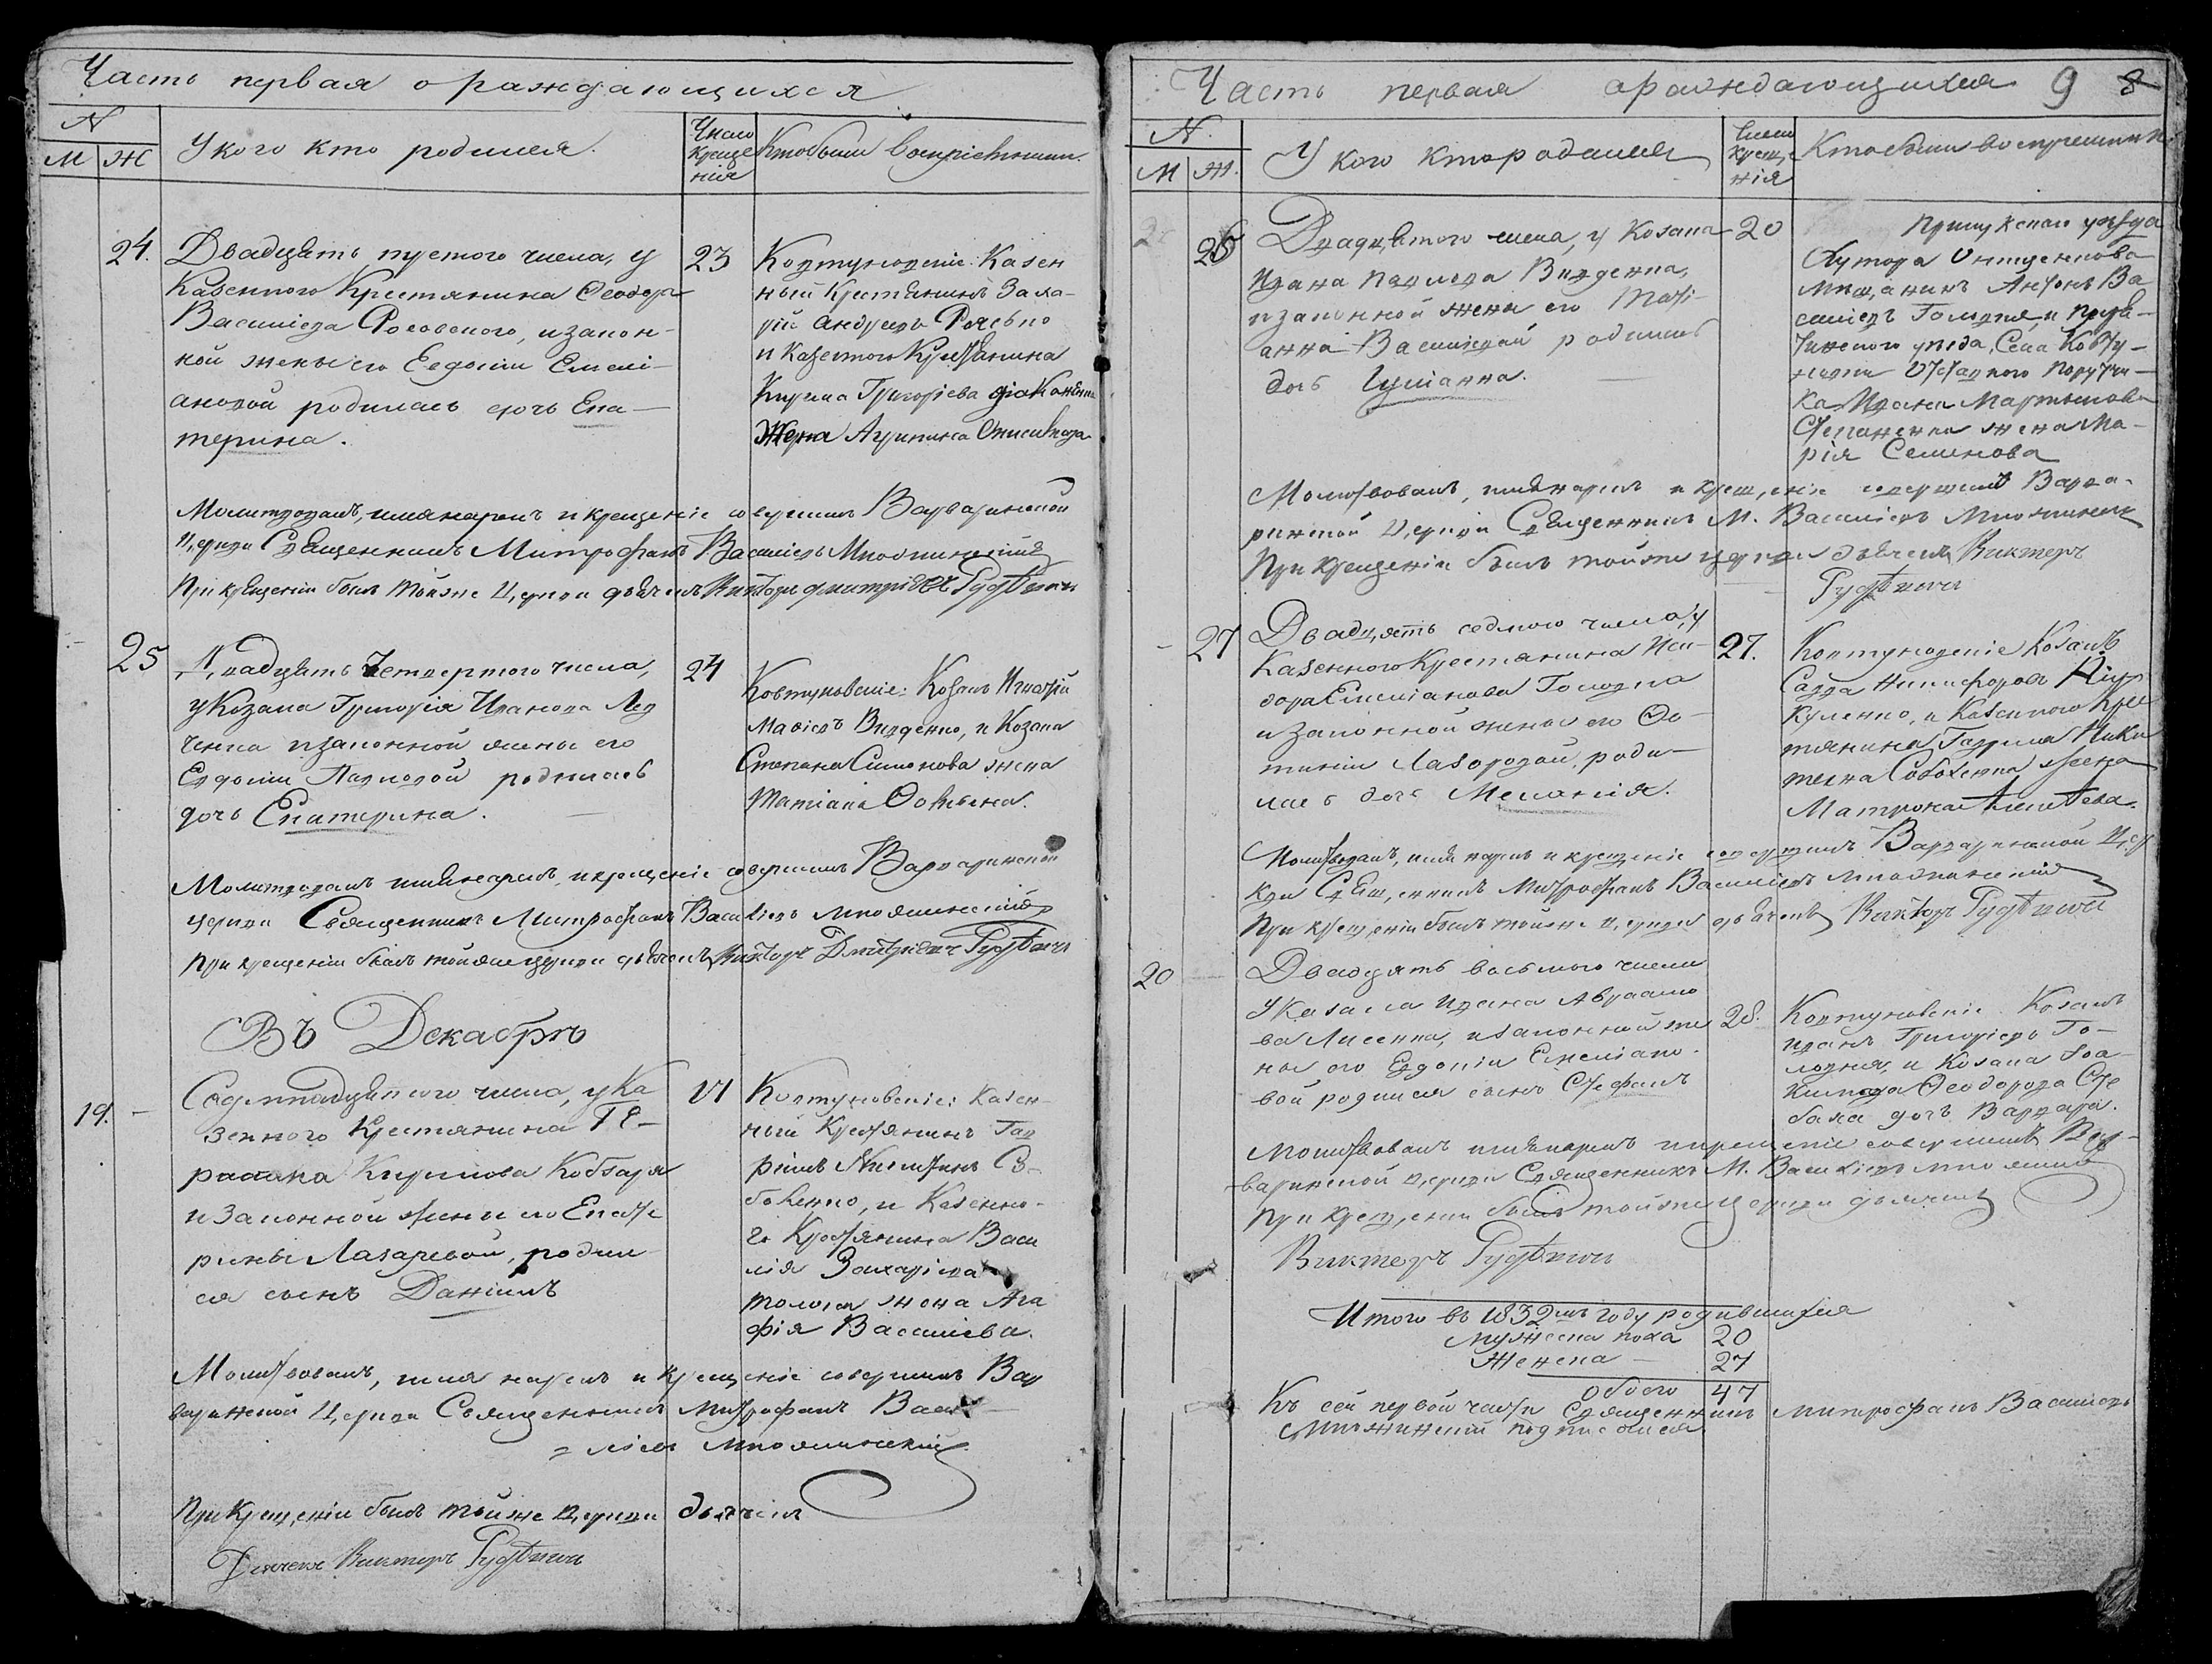 Часть первая о раждающихся
N
М Ж
У кого кто родился.
Число крещенія
Кто были воспріемники.
24.
Двадцять третого числа, у
Казенного Крестянина Ѳеодора
Василіева Росовского, и закон-
ной жены его Евдокіи Емелі-
ановой родилась дочь Ека-
терина.
23
Ковтуновскіе: Казен
ный Крестянинъ Заха-
рій Андреевъ
и Казенного Крестянина
Кирила Григоріева
Жена Агрипина
Молитвовалъ, имя нареклъ и крещеніе совершилъ Варваринской
Церкви Священникъ Митрофанъ Василіевъ
При крещеніи былъ тойже Церкви дьячекъ Викторъ Дмитріевъ
25
Двадцять четвертого числа,
у Козака Григорія Иванова
и законной жены его
Евдокіи Павловой родилась
дочь Екатерина.
24
Ковтуновскіе: Козакъ Игнатій
Викденко, и Козака
Степана Симонова жена
Татіана
Молитвовалъ имя нареклъ, и крещеніе совершилъ Варваринской
церкви Священникъ Митрофанъ Василіевъ
При крещеніи былъ тойже церкви дьячекъ Викторъ Дмитріевъ
Въ Декабрѣ
19.
Седмнадцятого числа, у Ка
зенного Крестянина Ге-
расима Кирилова Кобзаря
и законной жены его Екате
рины Лазаревой, родил
ся сынъ Даніилъ
Ковтуновскіе: Казен-
ный Крестянинъ Гав
рилъ Никитинъ Со-
боленко, и Казенно-
го Крестянина Васи
лія Захаріева
жена Ага
фія Василіева.
Молитвовалъ, имя нареклъ и крещеніе совершилъ Вар
варинской Церкви Священникъ Митрофанъ Васи-
ліевъ
При Крещеніи былъ тойже Церкви дьячекъ
Дьячекъ Викторъ
Часть первая о раждающихся 9 8
N.
М Ж.
У кого кто родился
Число крещенія
Кто были воспріемники
26
Двадцятого числа, у Козака
Ивана Павлова Викденка,
и законной жены его Таті-
анна Василіевой родилась
дочь Іуліанна.
20
уѣзда
Хутора
мѣщанинъ Антонъ Ва
силіевъ Голодня, и
уѣзда, Села Ковту-
новки Отставного Поручи-
ка Ивана Мартынова
Степаненка жена Ма-
рія Семенова
Молитвовалъ, имя нареклъ и крещеніе совершилъ Варва-
ринской Церкви Священникъ М. Василіевъ
При Крещеніи былъ тойже церкви дьячекъ Викторъ
27
Двадцять седмого числа, у
Казенного Крестянина Иси-
дора Емеліанова Голодна
и законной жены его Ѳе-
тиніи Лазоровой, роди-
лась дочь Меланія.
27.
Ковтуновскіе Козакъ
Савва Никифоровъ
и Казенного Крес
тянина Гаврила Ники
тина Соболенка жена
Матрона
Молитвовалъ, имя нареклъ и крещеніе совершилъ Варваринской Цер
кви Священникъ Митрофанъ Василіевъ
При крещеніи былъ тойже церкви дьячекъ Викторъ
20
Двадцять восьмого числа
У Казака Ивана Авраамо
ва Лисенка, и законной же
ны его Евдокіи Емеліано-
вой родился сынъ Стефанъ
28.
Ковтуновскіе Козакъ
Иванъ Григоріевъ Го-
лодня, и Козака Іоа
Ѳеодорова
дочь Варвара.
Молитвовалъ имя нареклъ и крещеніе совершилъ Вар-
варинской церкви Священникъ М. Василіевъ
При крещеніи былъ тойже церкви дьячекъ
Викторъ
Итого въ 1832мъ году родившихся
мужеска пола 20
Женска — 27
Обоего 47
Къ сей первой части Священникъ Митрофанъ Василіевъ
подписался